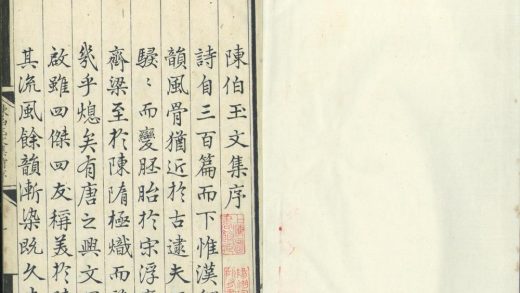 陳伯玉文集序
詩自三百篇而下惟漢
韻風骨猶近於古逮夫
駸〻而變胚胎於宋浮
齊梁至於陳隋極熾而
幾乎熄矣有唐之興文
啟雖四傑四友稱美於
其流風餘韻漸染既久